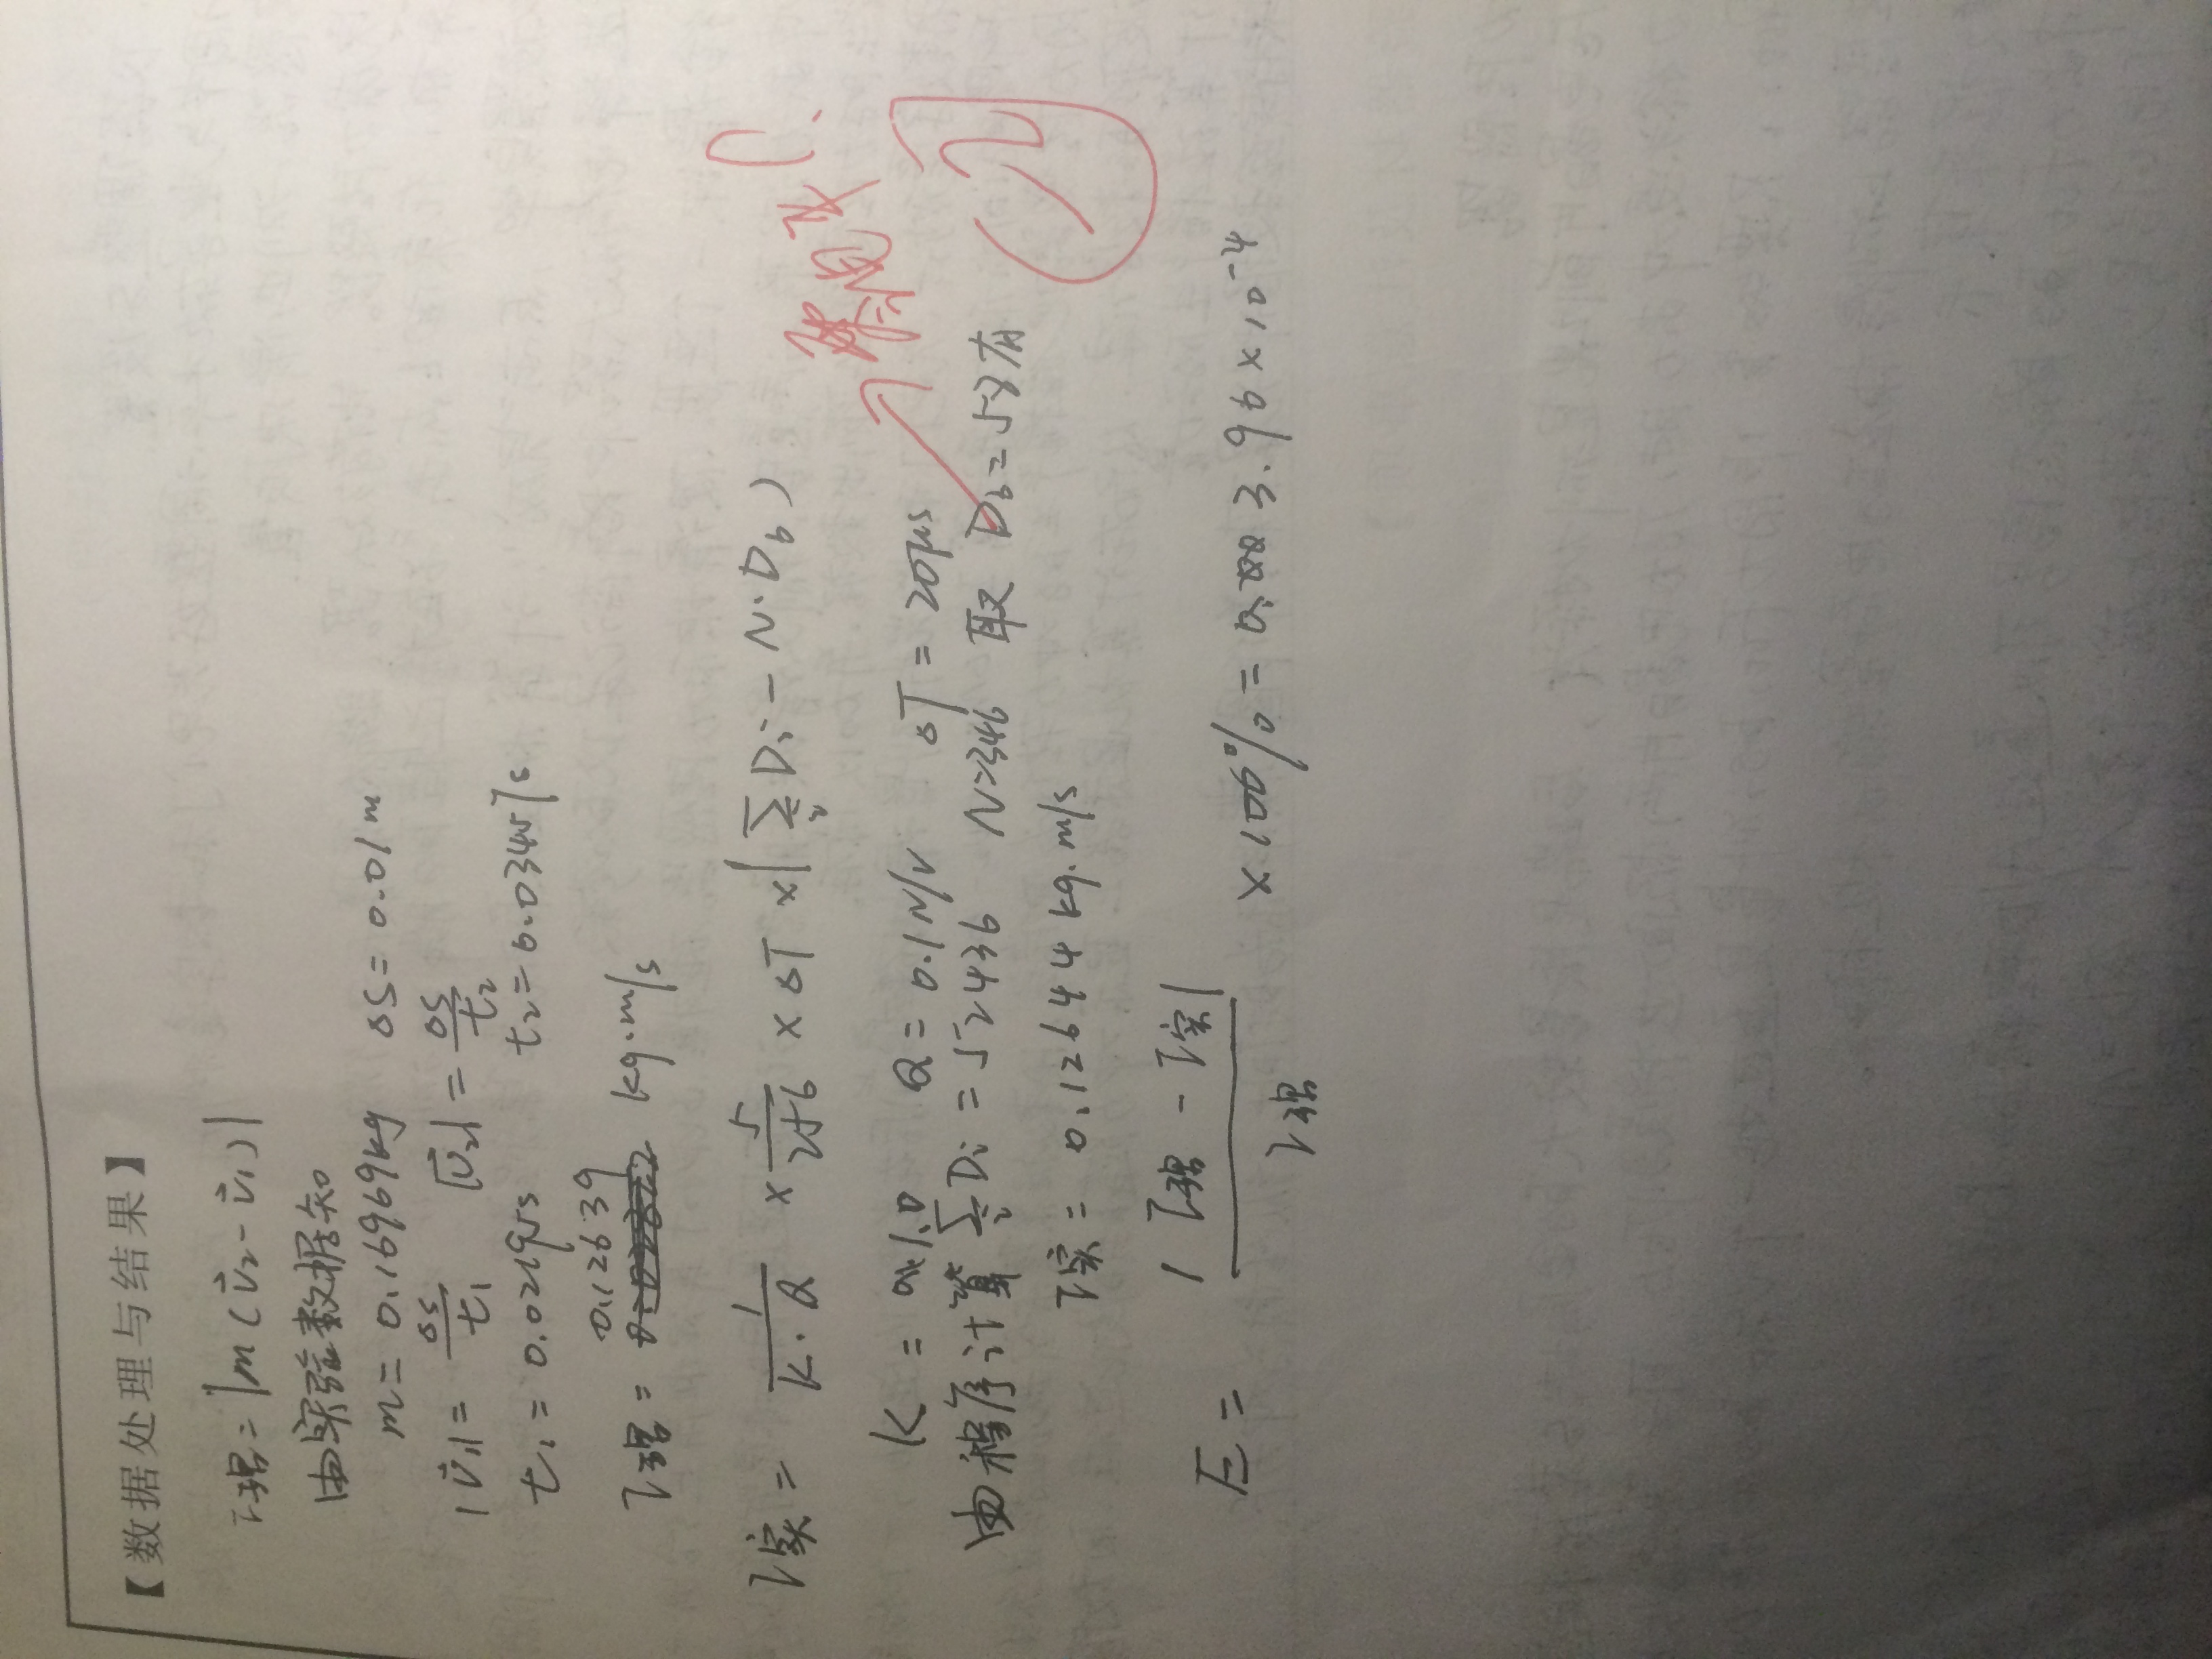 【数据处理与结果】
I理 = |m(v⃗₂ - v⃗₁)|
由实验数据知
m = 0.16969kg Δs = 0.01m
|v⃗₁| = Δs/t₁ |v⃗₂| = Δs/t₂
t₁ = 0.02195s t₂ = 0.03457s
0.12639
I理 = kg·m/s
I实 = 1/(K·Q) × 5/256 × ΔT × (∑Dᵢ - N·D₀)
K = 1.0 Q = 0.1N/V ΔT = 20μs
由程序计算 ∑Dᵢ = 52436 N=346 取 D₀=58有
I实 = 0.12644 kg·m/s
E = |I理 - I实|/I理 × 100% = 3.96×10⁻⁴
电平?